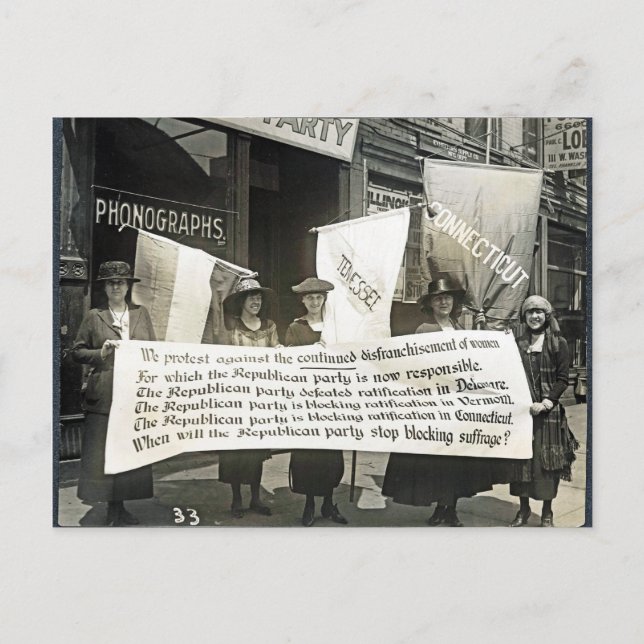 PARTY
PHONOGRAPHS.
ILLINOIS
TENESSEE
CONNECTICUT
111 W. WASH
We protest against the continued disfranchisement of women
For which the Republican party is now responsible.
The Republican party defeated ratification in Delaware.
The Republican party is blocking ratification in Vermont.
The Republican party is blocking ratification in Connecticut.
When will the Republican party stop blocking suffrage?
33